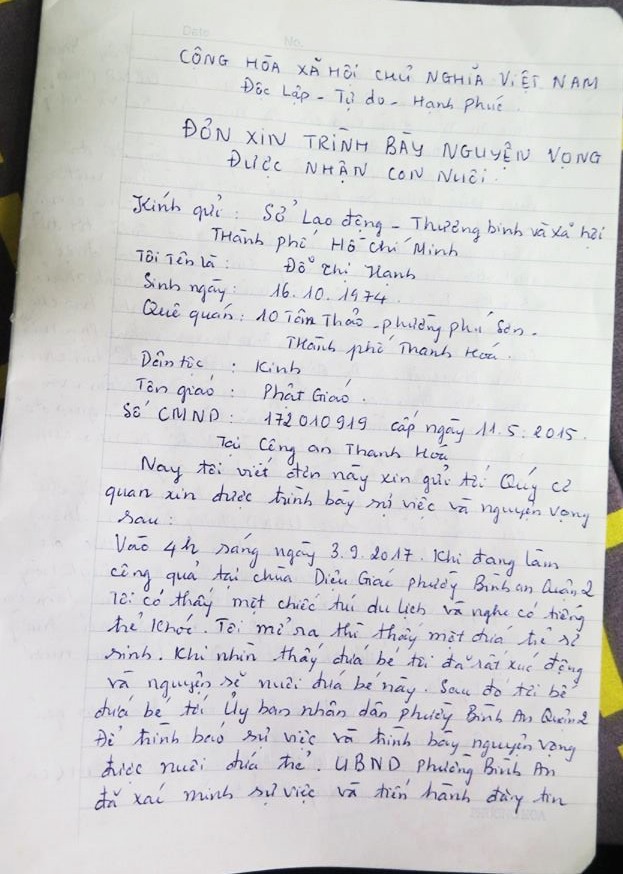 Date No.
CỘNG HÒA XÃ HỘI CHỦ NGHĨA VIỆT NAM
Độc Lập - Tự do - Hạnh Phúc.
ĐƠN XIN TRÌNH BÀY NGUYỆN VỌNG
ĐƯỢC NHẬN CON NUÔI.
Kính gửi : Sở Lao động - Thương binh và xã hội
Thành phố Hồ Chí Minh
Tôi Tên là : Đỗ Thị Hạnh
Sinh ngày : 16.10.1974.
Quê quán : 10 Tân Thảo - phường phú Sơn -
Thành phố Thanh Hoá.
Dân tộc : Kinh
Tôn giáo : Phật Giáo.
Số CMND : 172010919 cấp ngày 11.5.2015.
Tại Công an Thanh Hoá
Nay tôi viết đơn này xin gửi tới Quý cơ
quan xin được trình bày sự việc và nguyện vọng
sau :
Vào 4h sáng ngày 3.9.2017. Khi đang làm
công quả tại chùa Diệu Giác phường Bình an Quận 2
Tôi có thấy một chiếc túi du lịch và nghe có tiếng
trẻ khóc. Tôi mở ra thì thấy một đứa trẻ sơ
sinh. Khi nhìn thấy đứa bé tôi đã rất xúc động
và nguyện sẽ nuôi đứa bé này. Sau đó tôi bế
đứa bé tới Ủy ban nhân dân phường Bình An Quận 2
Để trình báo sự việc và trình bày nguyện vọng
được nuôi đứa trẻ. UBND phường Bình An
đã xác minh sự việc và tiến hành đăng tin